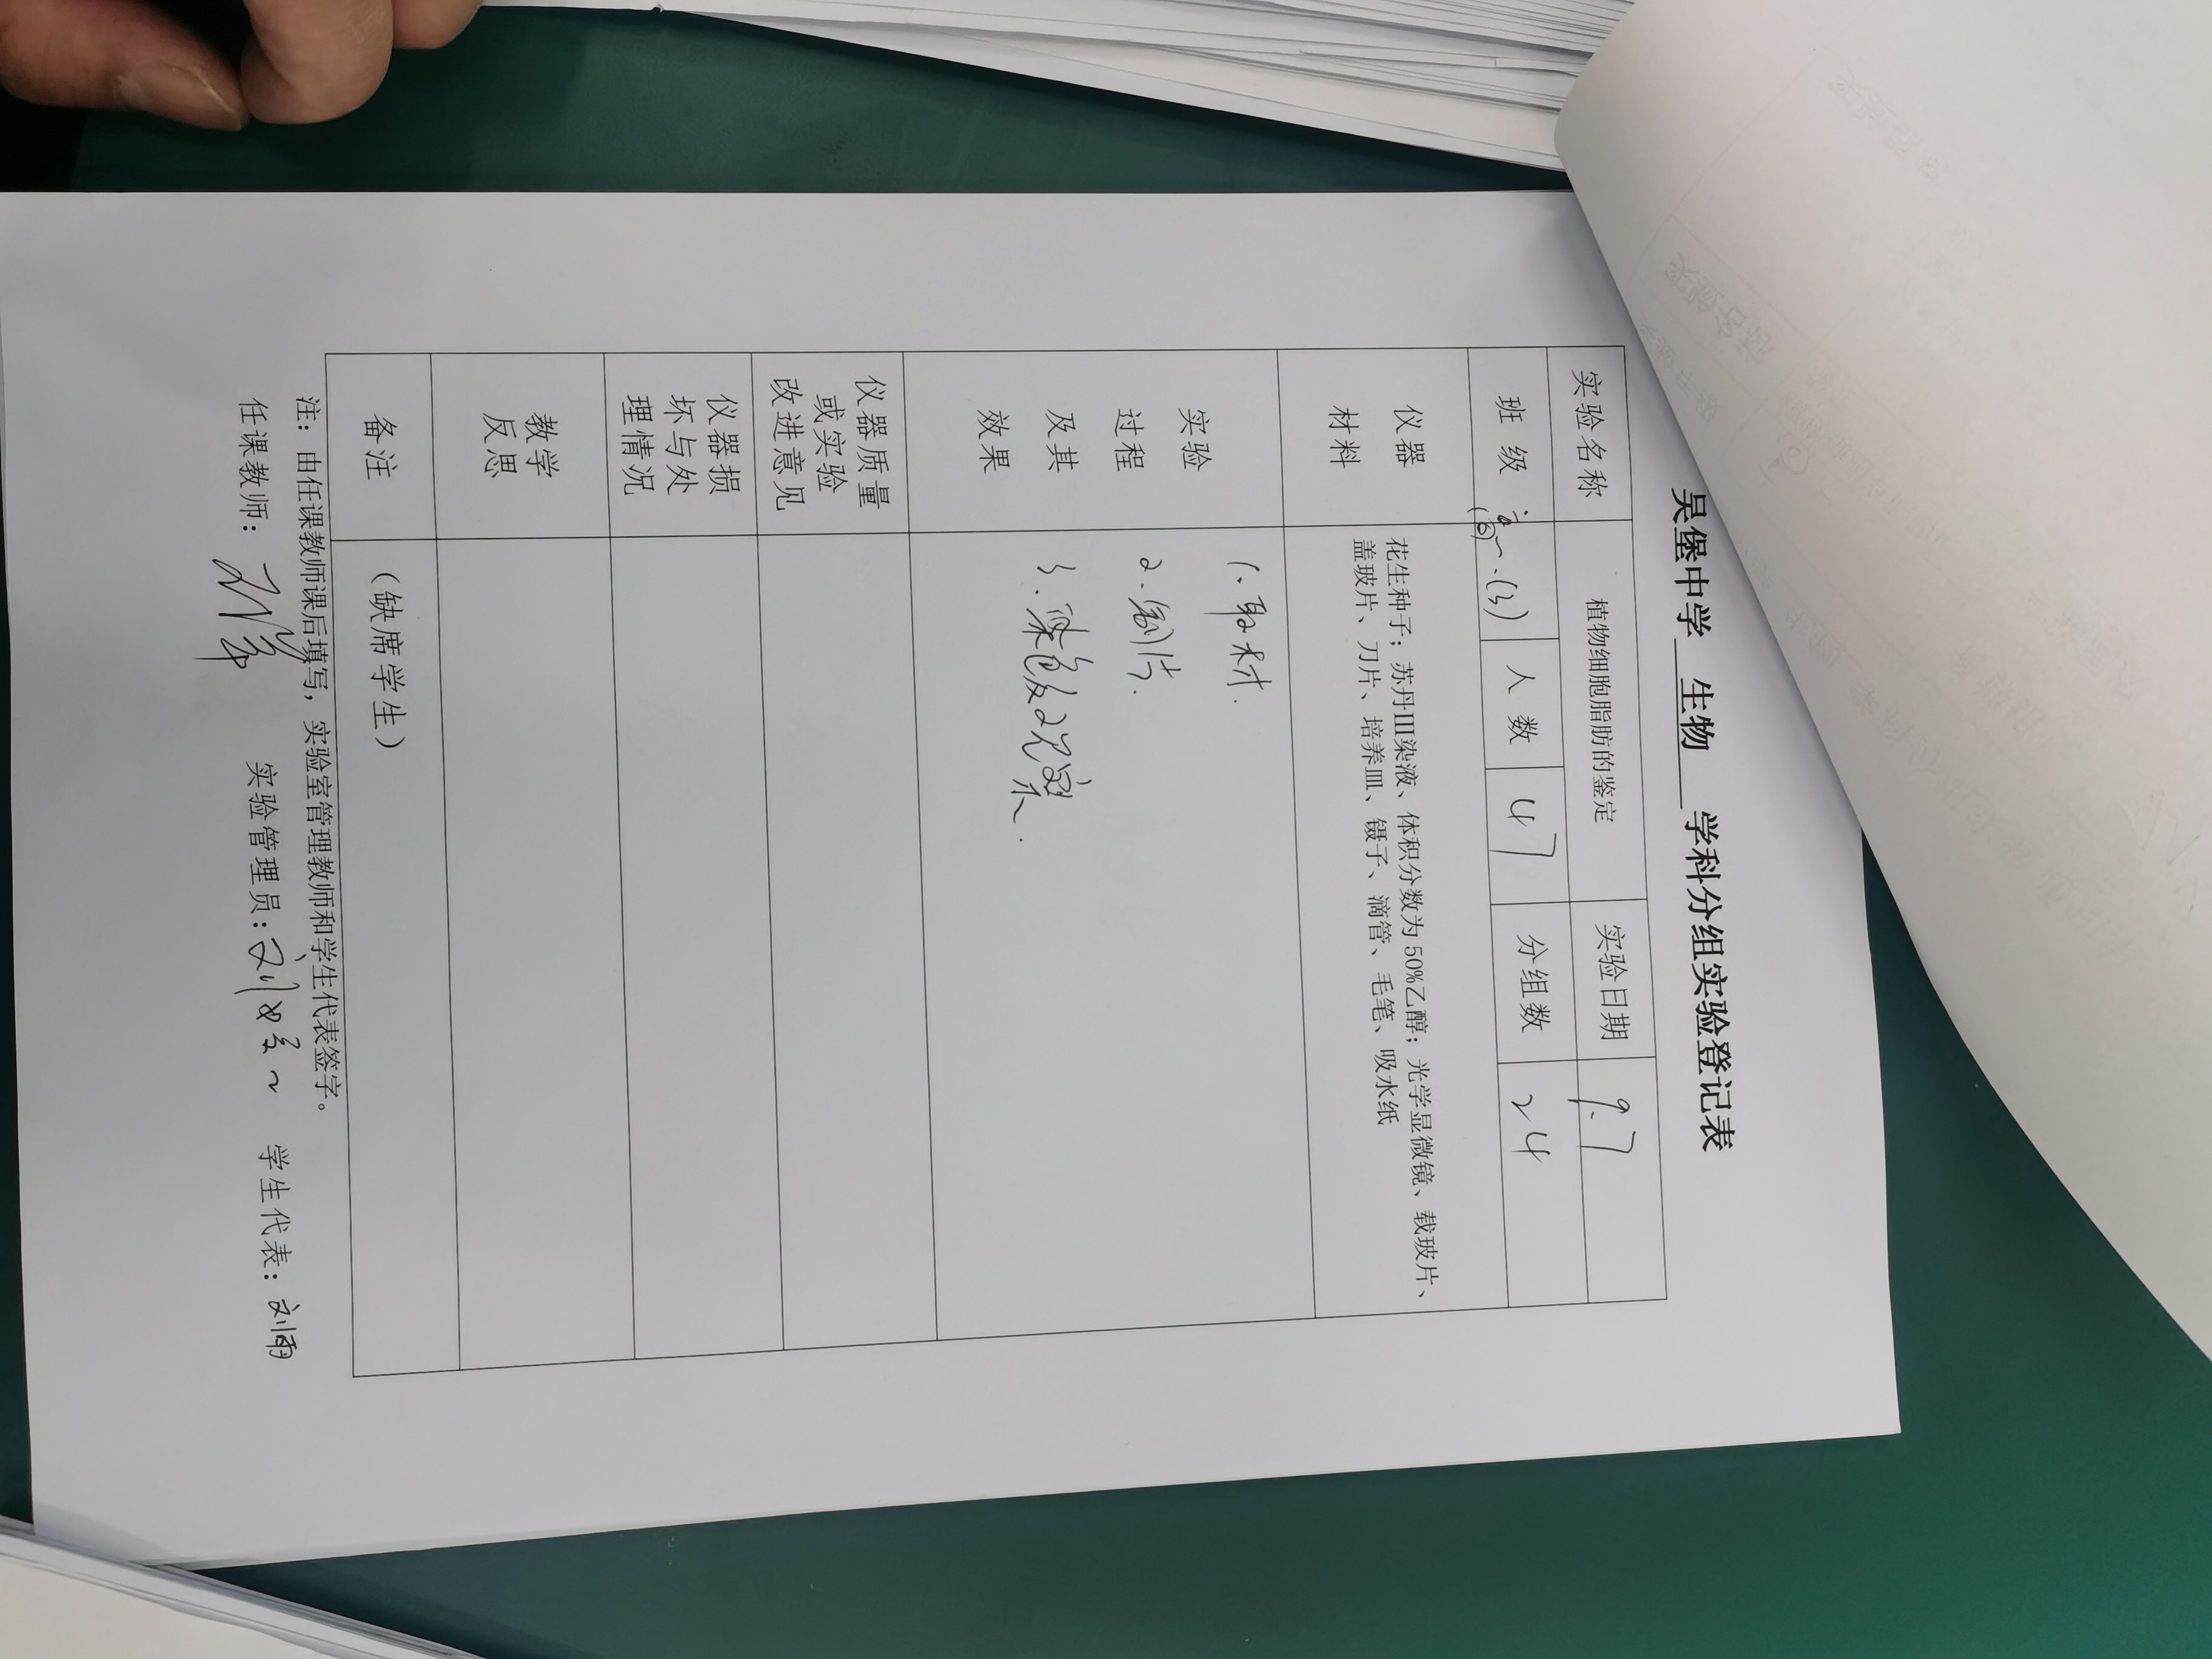 吴堡中学 生物 学科分组实验登记表
实验名称 植物细胞脂肪的鉴定 实验日期 9.7
班级 高一.(3) 人数 47 分组数 24
(6)
仪器材料 花生种子；苏丹III染液、体积分数为50%乙醇；光学显微镜、载玻片、
盖玻片、刀片、培养皿、镊子、滴管、毛笔、吸水纸
实验过程及其效果
1.取材.
2.制片.
3.染色及观察
仪器质量或实验改进意见
仪器损坏与处理情况
教学反思
备注 （缺席学生）
注：由任课教师课后填写，实验室管理教师和学生代表签字。
任课教师： 实验管理员：刘 学生代表：刘雨